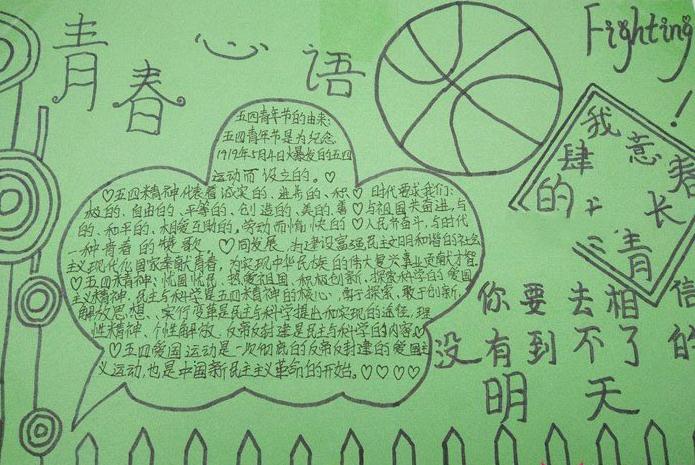 青春心语
Fighting!
五四青年节的由来:
五四青年节是为纪念
1919年5月4日爆发的五四
运动而设立的。
♡五四精神代表着诚实的、进步的、积♡时代要求我们:
极的、自由的、平等的、创造的、美的、善♡与祖国共奋进,与
的、和平的、相爱互助的。劳动而愉快的♡人民齐奋斗,与时代
一种青春的赞歌。♡同发展,为建设富强民主文明和谐的社会
主义现代化国家奉献青春,为实现中华民族的伟大复兴事业贡献才智
♡五四精神:忧国忧民、热爱祖国、积极创新、探索科学的爱国
主义精神,民主与科学是五四精神的核心,勇于探索、敢于创新、
解放思想、实行变革是民主与科学提出和实现的途径,理
性精神、个性解放、反帝反封建是民主与科学的内容♡
♡五四爱国运动是一次彻底的反帝反封建的爱国主
义运动,也是中国新民主主义革命的开始。♡♡♡♡
我意
肆
的
长
青
你要去相信
没有到不了的
明天